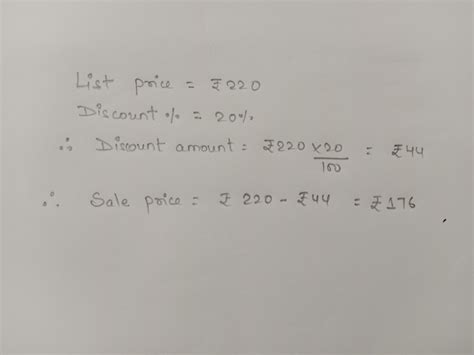 List price = ₹220
Discount % = 20%
∴ Discount amount = ₹220 × 20/100 = ₹44
∴ Sale price = ₹ 220 - ₹44 = ₹176